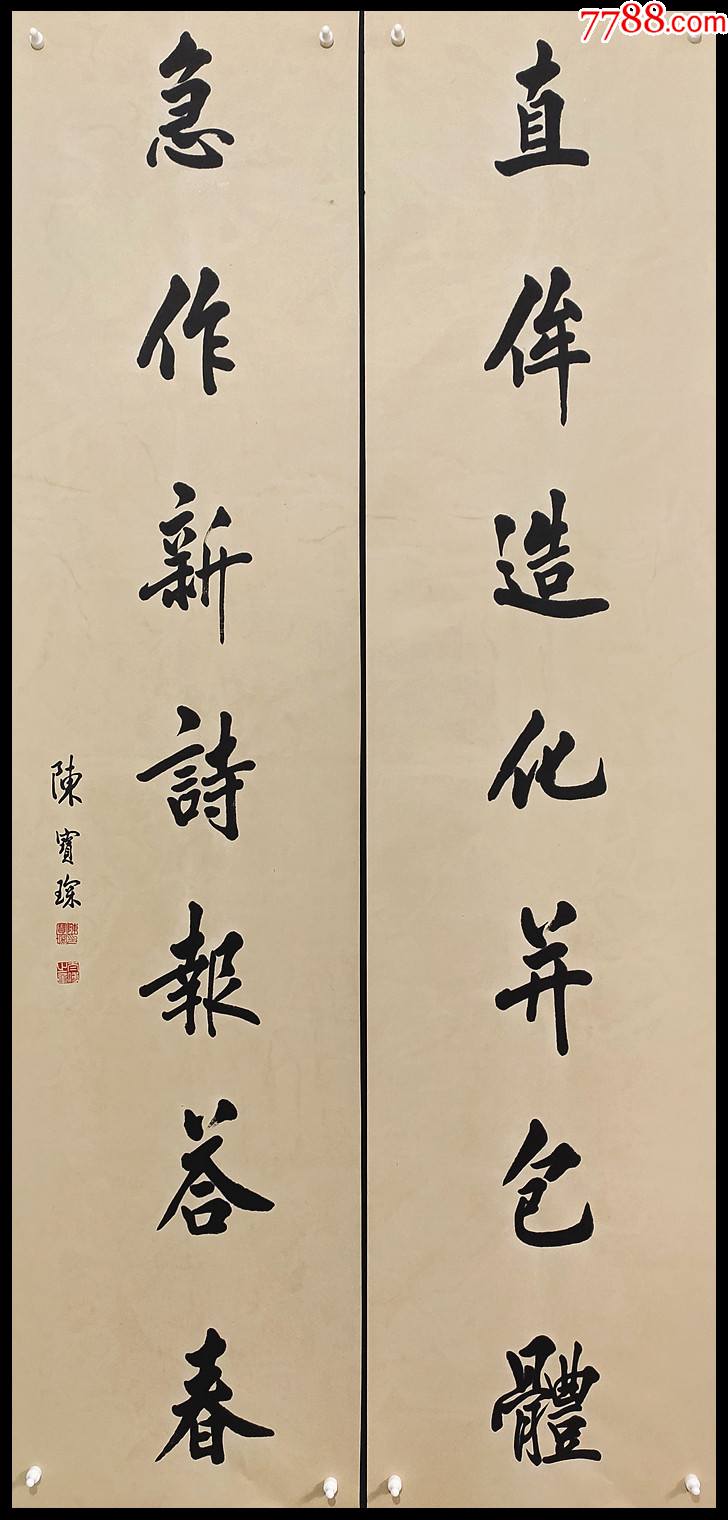 7788.com
直侔造化并包體
急作新詩報答春
陳寶琛